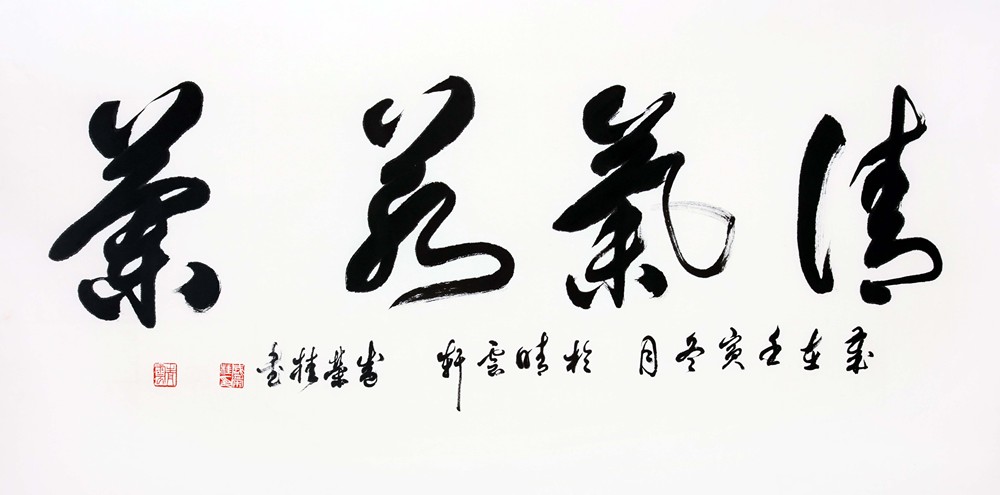 清氣若蘭
歲在壬寅冬月於晴雲軒 榮桂書